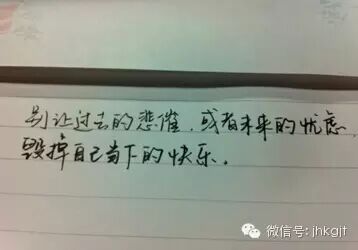 别让过去的悲催，或者未来的忧虑，
毁掉自己当下的快乐。
微信号：jhkgjt